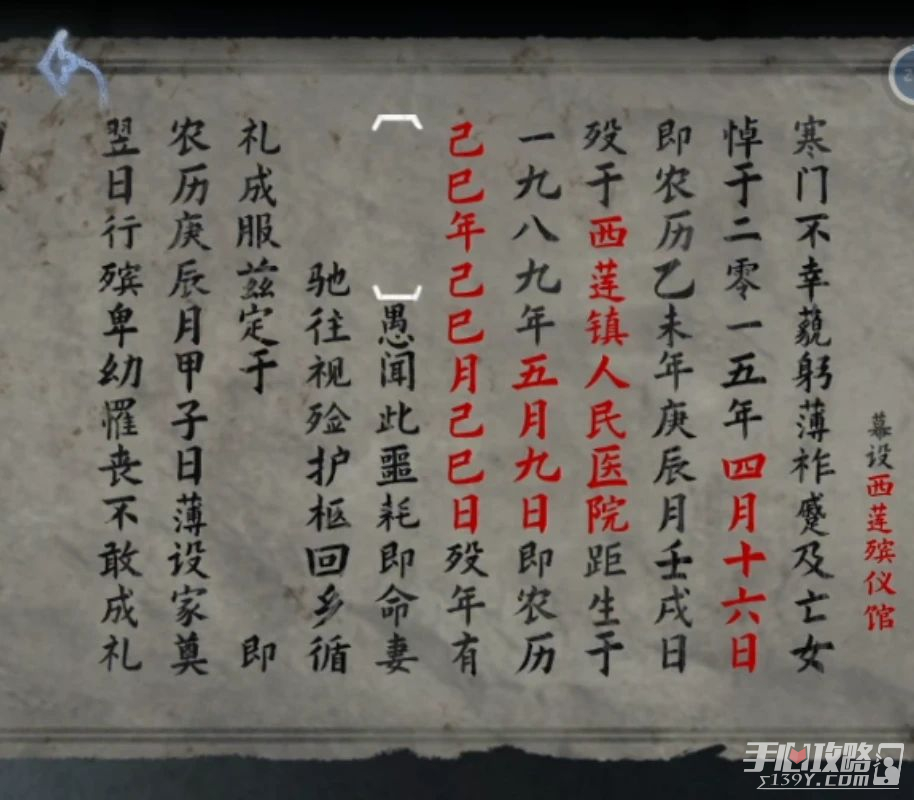 幕设西莲殡仪馆
寒门不幸藐躬薄祚蹙及亡女
悼于二零一五年四月十六日
即农历乙未年庚辰月壬戌日
殁于西莲镇人民医院距生于
一九八九年五月九日即农历
己巳年己巳月己巳日殁年有
愚闻此噩耗即命妻
驰往视殓护枢回乡循
礼成服兹定于 即
农历庚辰月甲子日薄设家奠
翌日行殡卑幼罹丧不敢成礼
手心攻略
139Y.COM